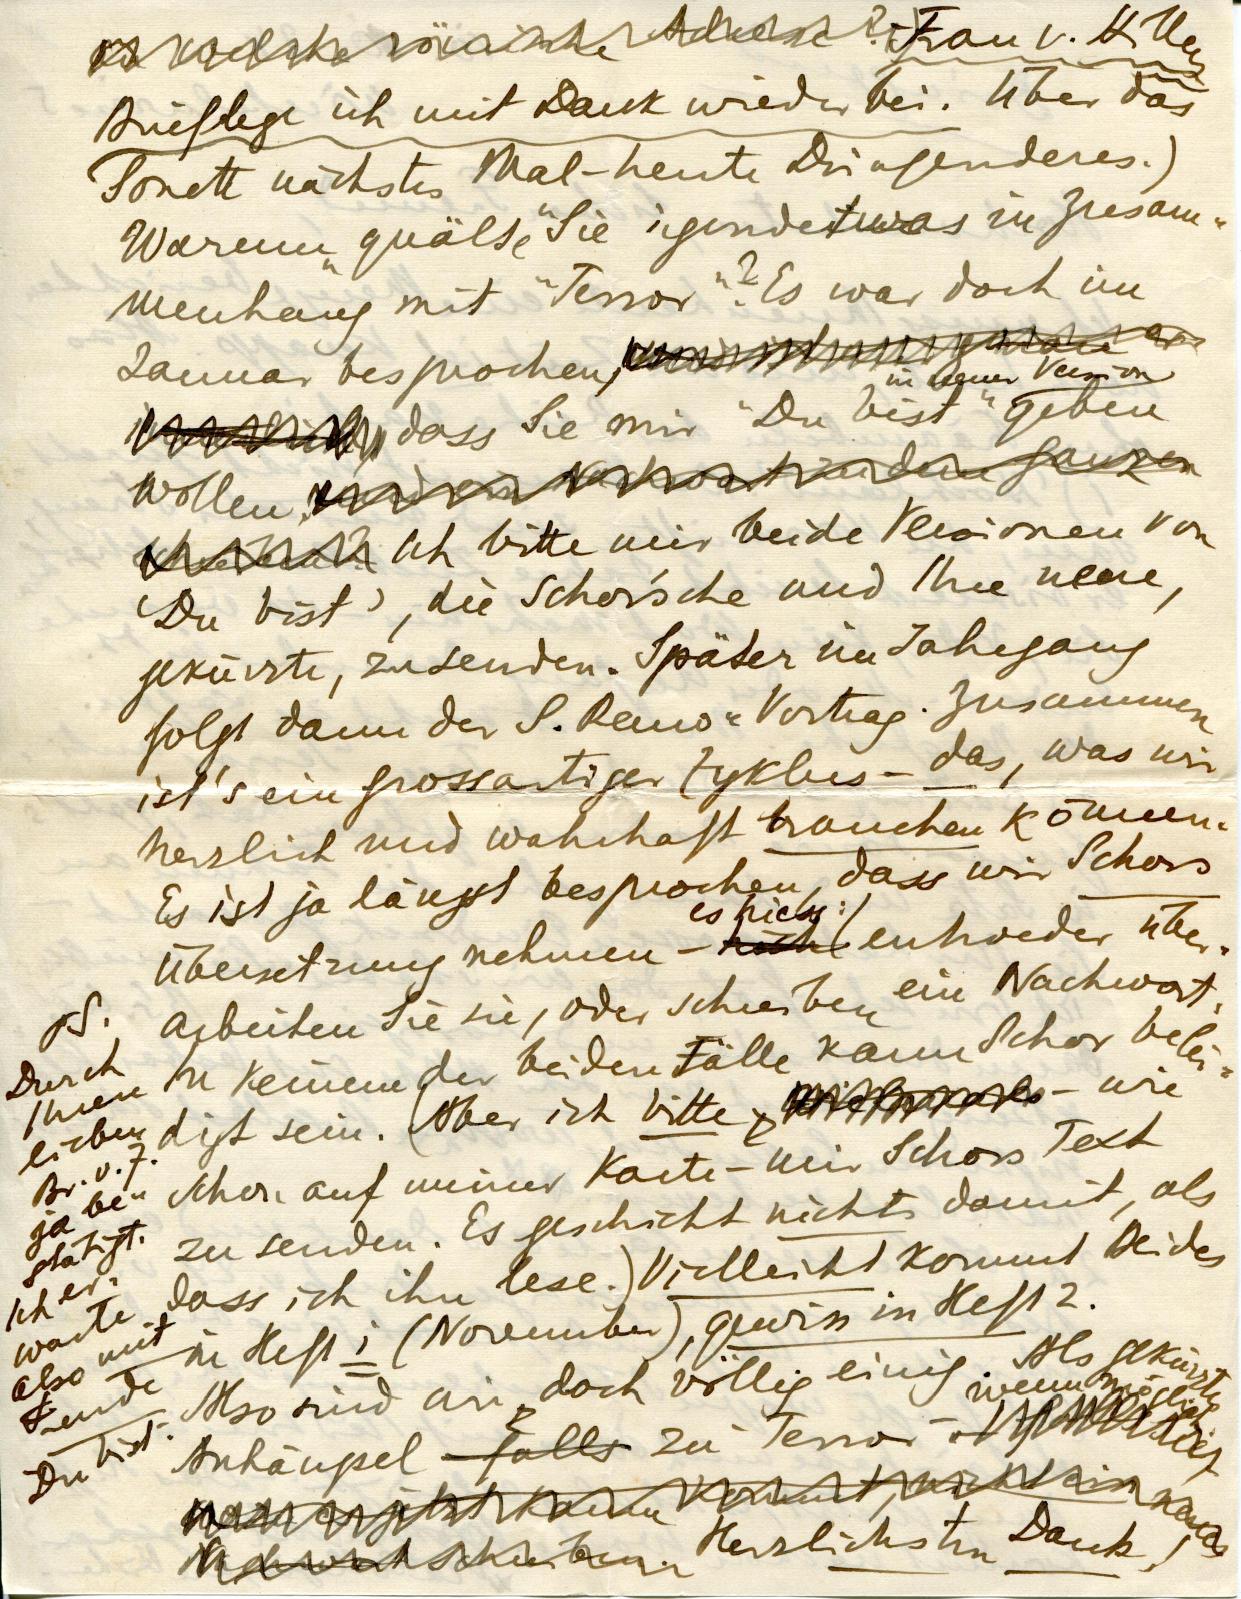 Adresse?) Frau v.
Brief lege ich mit Dank wieder bei. Über das
Sonett nächstes Mal – heute Dringenderes.)
Warum „quält“ Sie irgendetwas in Zusam-
menhang mit "Terror"? Es war doch im
Januar besprochen,
in neuer Version
dass Sie mir "Du bist" geben
wollen.
Ich bitte mir beide Versionen von
'Du bist', die Schor'sche und Ihre neue,
gekürzte, zusenden. Später im Jahrgang
folgt dann der S. Remo-Vortrag. Zusammen
ist's ein grossartiger Zyklus – das, was wir
herzlich und wahrhaft brauchen können.
Es ist ja längst besprochen, dass wir Schors
es hiess:
Übersetzung nehmen – (entweder über-
arbeiten Sie sie, oder schreiben ein Nachwort.
In keinem der beiden Fälle kann Schor belei-
digt sein. (Aber ich bitte – wie
schon auf meiner Karte – mir Schors Text
zu senden. Es geschieht nichts damit, als
dass ich ihn lese.) Vielleicht kommt Beides
in Heft 1 (November), gewiss in Heft 2.
Also sind wir doch völlig einig. Als gekürztes
wenn möglich
Anhängsel falls zu Terror
Herzlichsten Dank!
PS.
Durch
Ihren
lieben
Br. v. 7.
ja be-
stätigt.
Ich er-
warte
also mit
Freude
Du bist.